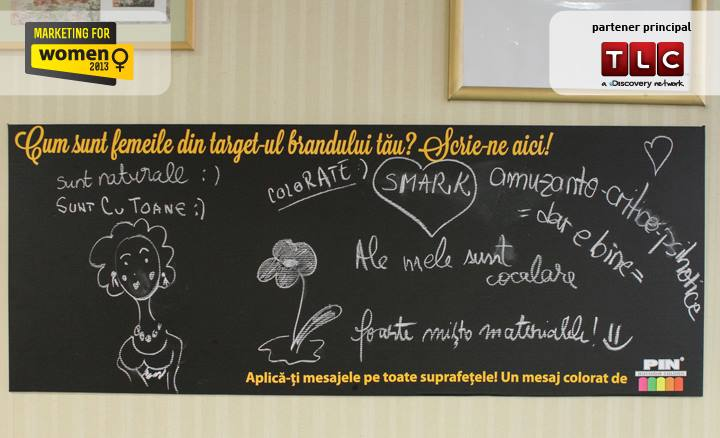 MARKETING FOR
women
2013
partener principal
TLC
a Discovery network.
Cum sunt femeile din target-ul brandului tău? Scrie-ne aici!
sunt naturale :)
SUNT CU TOANE ;)
COLORATE :)
SMARK
amuzante-critice-psihotice
= dar e bine =
Ale mele sunt
cocalare
foarte mișto materialele!
Aplică-ți mesajele pe toate suprafețele! Un mesaj colorat de
PIN